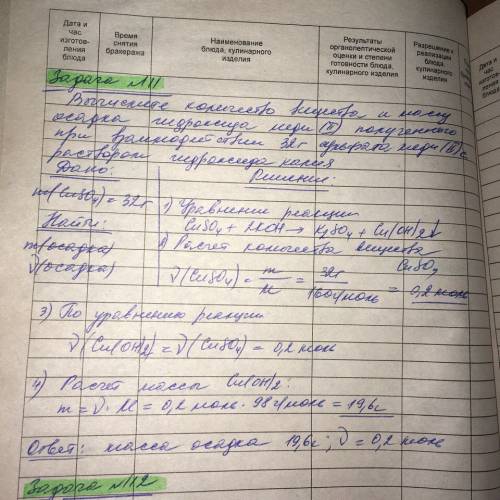 Дата и час изготов-ления блюда
Время снятия бракеража
Наименование блюда, кулинарного изделия
Результаты органолептической оценки и степени готовности блюда, кулинарного изделия
Разрешение к реализации блюда, кулинарного изделия
Дата и
час
Задача №11
Вычислите количество вещества и массу
осадка гидроксида меди (II) полученного
при взаимодействии 32г сульфата меди (II) с
раствором гидроксида калия
Дано:
Решение:
m(CuSO4) = 32г
1) Уравнение реакции
Найти:
CuSO4 + 2KOH → K2SO4 + Cu(OH)2↓
m(осадка)
2) Расчет количества вещества
ν(осадка)
CuSO4
ν(CuSO4) = m/M = 32г/160г/моль = 0,2 моль
3) По уравнению реакции
ν(Cu(OH)2) = ν(CuSO4) = 0,2 моль
4) Расчет массы Cu(OH)2:
m = ν · M = 0,2 моль · 98 г/моль = 19,6г
Ответ: масса осадка 19,6г; ν = 0,2 моль
Задача №12